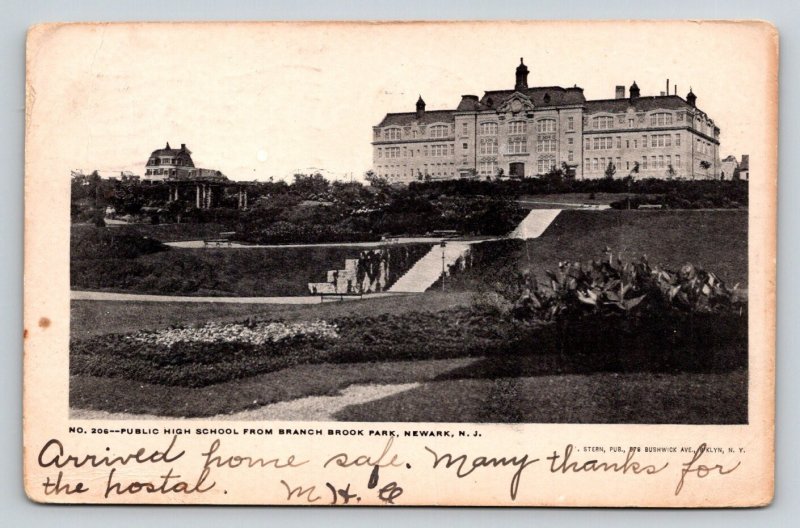 NO. 206--PUBLIC HIGH SCHOOL FROM BRANCH BROOK PARK, NEWARK, N. J.
STERN, PUB., BUSHWICK AVE., N. Y.
Arrived home safe. Many thanks for
the postal. M. H. C